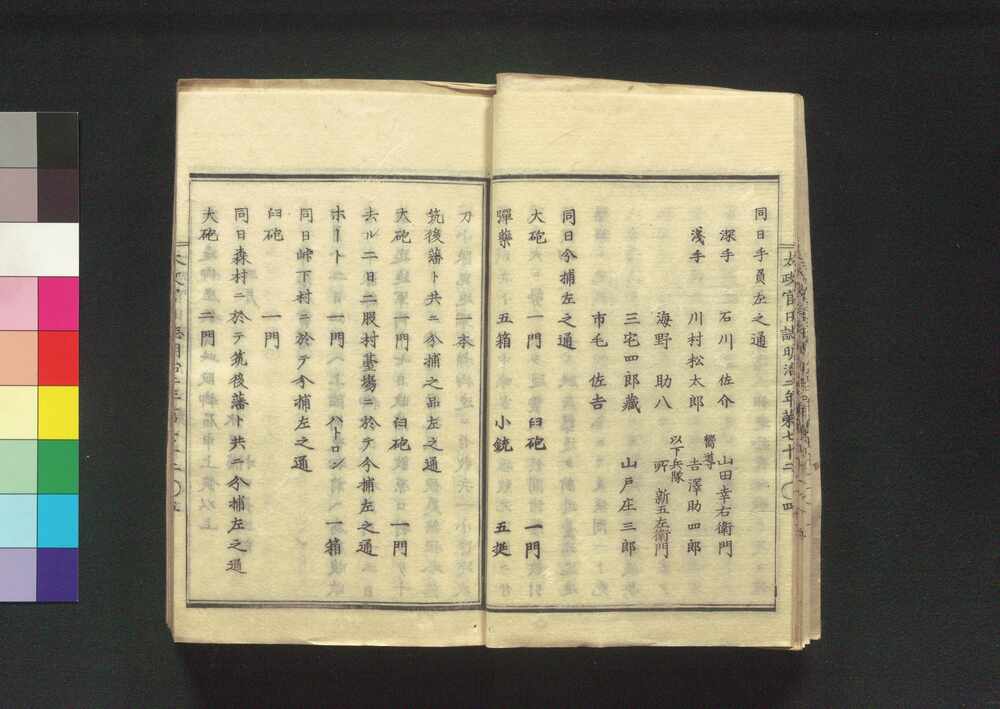 太政官日誌明治二年第七十二〇四
同日手負左之通
深手 石川佐介 山田幸右衛門
浅手 川村松太郎 嚮導 吉澤助四郎
海野助八 以下兵隊 所新五左衛門
三宅四郎藏 山戸庄三郎
市毛佐吉
同日分捕左之通
大砲 一門 臼砲 一門
彈藥 五箱 小銃 五挺
刀 一本
筑後藩ト共ニ分捕之品左之通
大砲 一門 臼砲 一門
去ル二日二股村䑓塲ニ於テ分捕左之通
ホート 一門 ハトロン 一箱
同日峠下村ニ於テ分捕左之通
臼砲 一門
同日森村ニ於テ筑後藩ト共ニ分捕左之通
大砲 二門